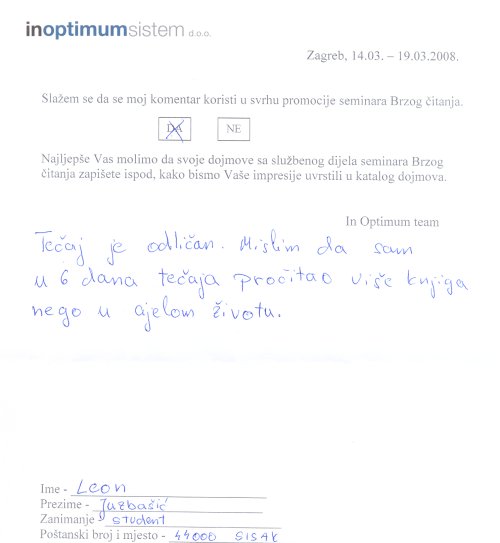 inoptimumsistem d.o.o.
Zagreb, 14.03. – 19.03.2008.
Slažem se da se moj komentar koristi u svrhu promocije seminara Brzog čitanja.
DA NE
Najljepše Vas molimo da svoje dojmove sa službenog dijela seminara Brzog
čitanja zapišete ispod, kako bismo Vaše impresije uvrstili u katalog dojmova.
In Optimum team
Tečaj je odličan. Mislim da sam
u 6 dana tečaja pročitao više knjiga
nego u cjelom životu.
Ime - Leon
Prezime - Juzbašić
Zanimanje - student
Poštanski broj i mjesto - 44000 SISAK